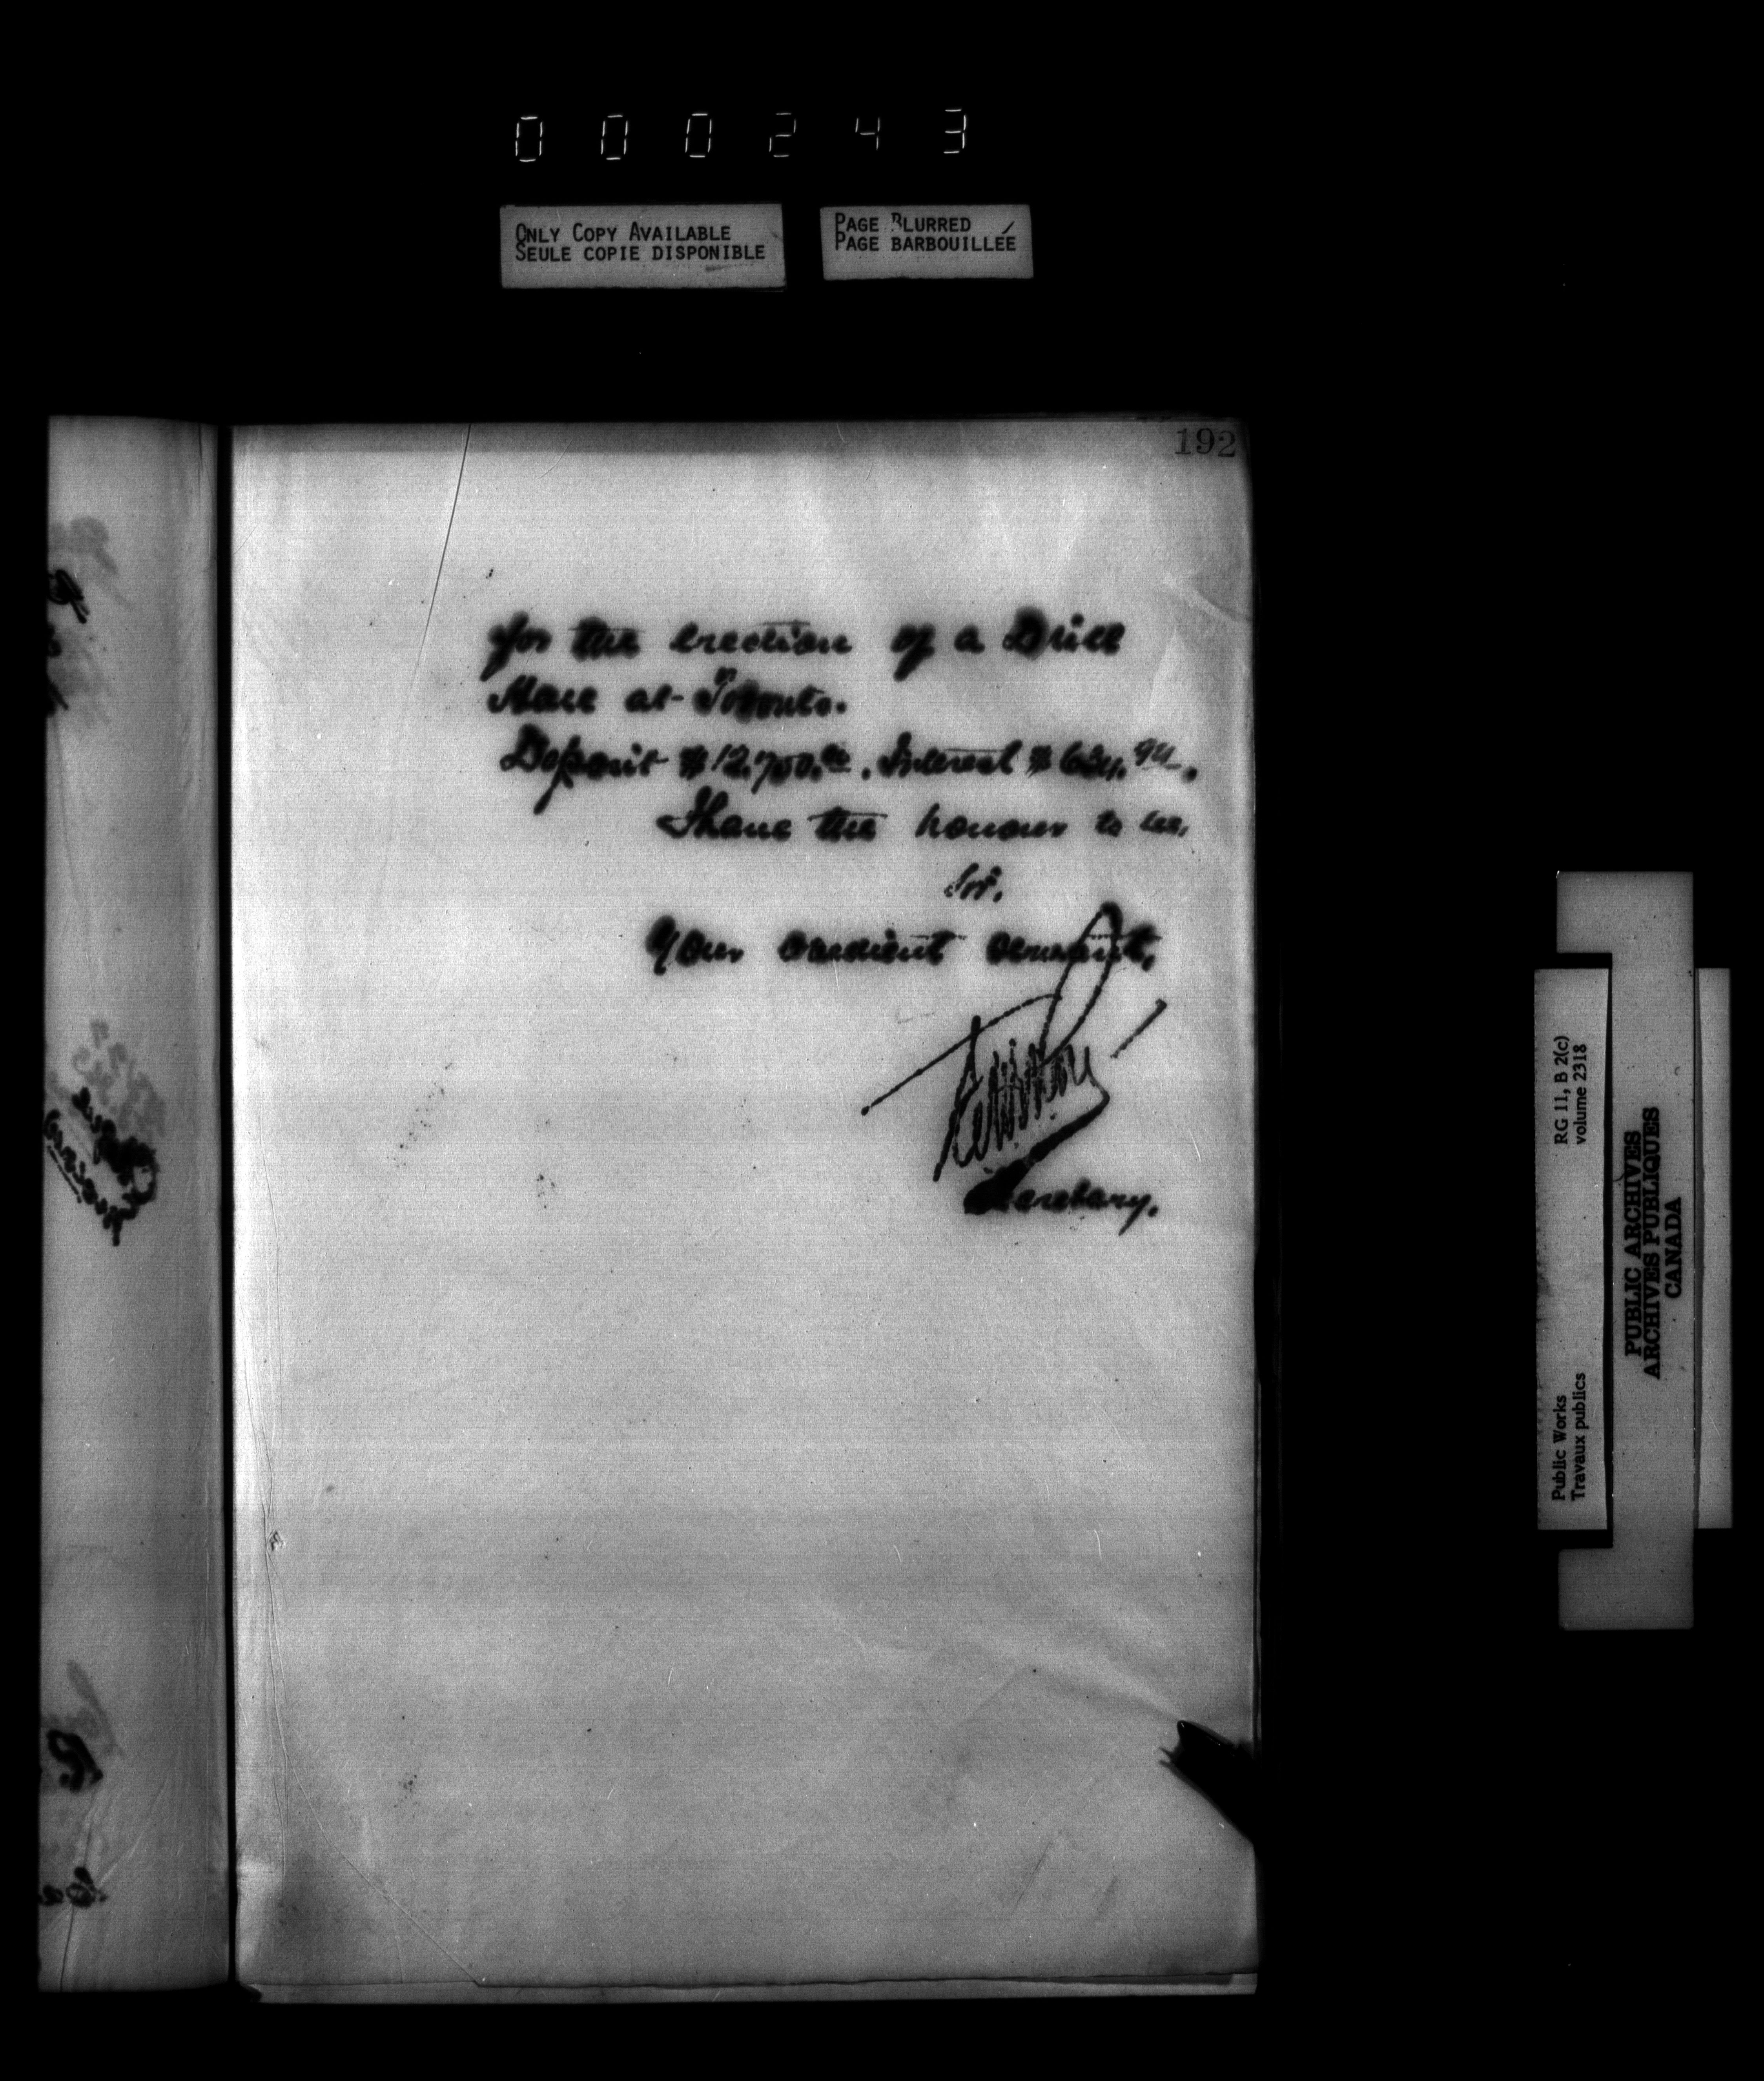 000243
ONLY COPY AVAILABLE
SEULE COPIE DISPONIBLE
PAGE BLURRED
PAGE BARBOUILLÉE
192
for the erection of a Drill
Hall at Toronto.
Deposit $12,700.00. Interest
I have the honour to be,
Sir,
Your obedient servant,
Secretary.
RG 11, B 2(c)
volume 2318
Public Works
Travaux publics
PUBLIC ARCHIVES
ARCHIVES PUBLIQUES
CANADA